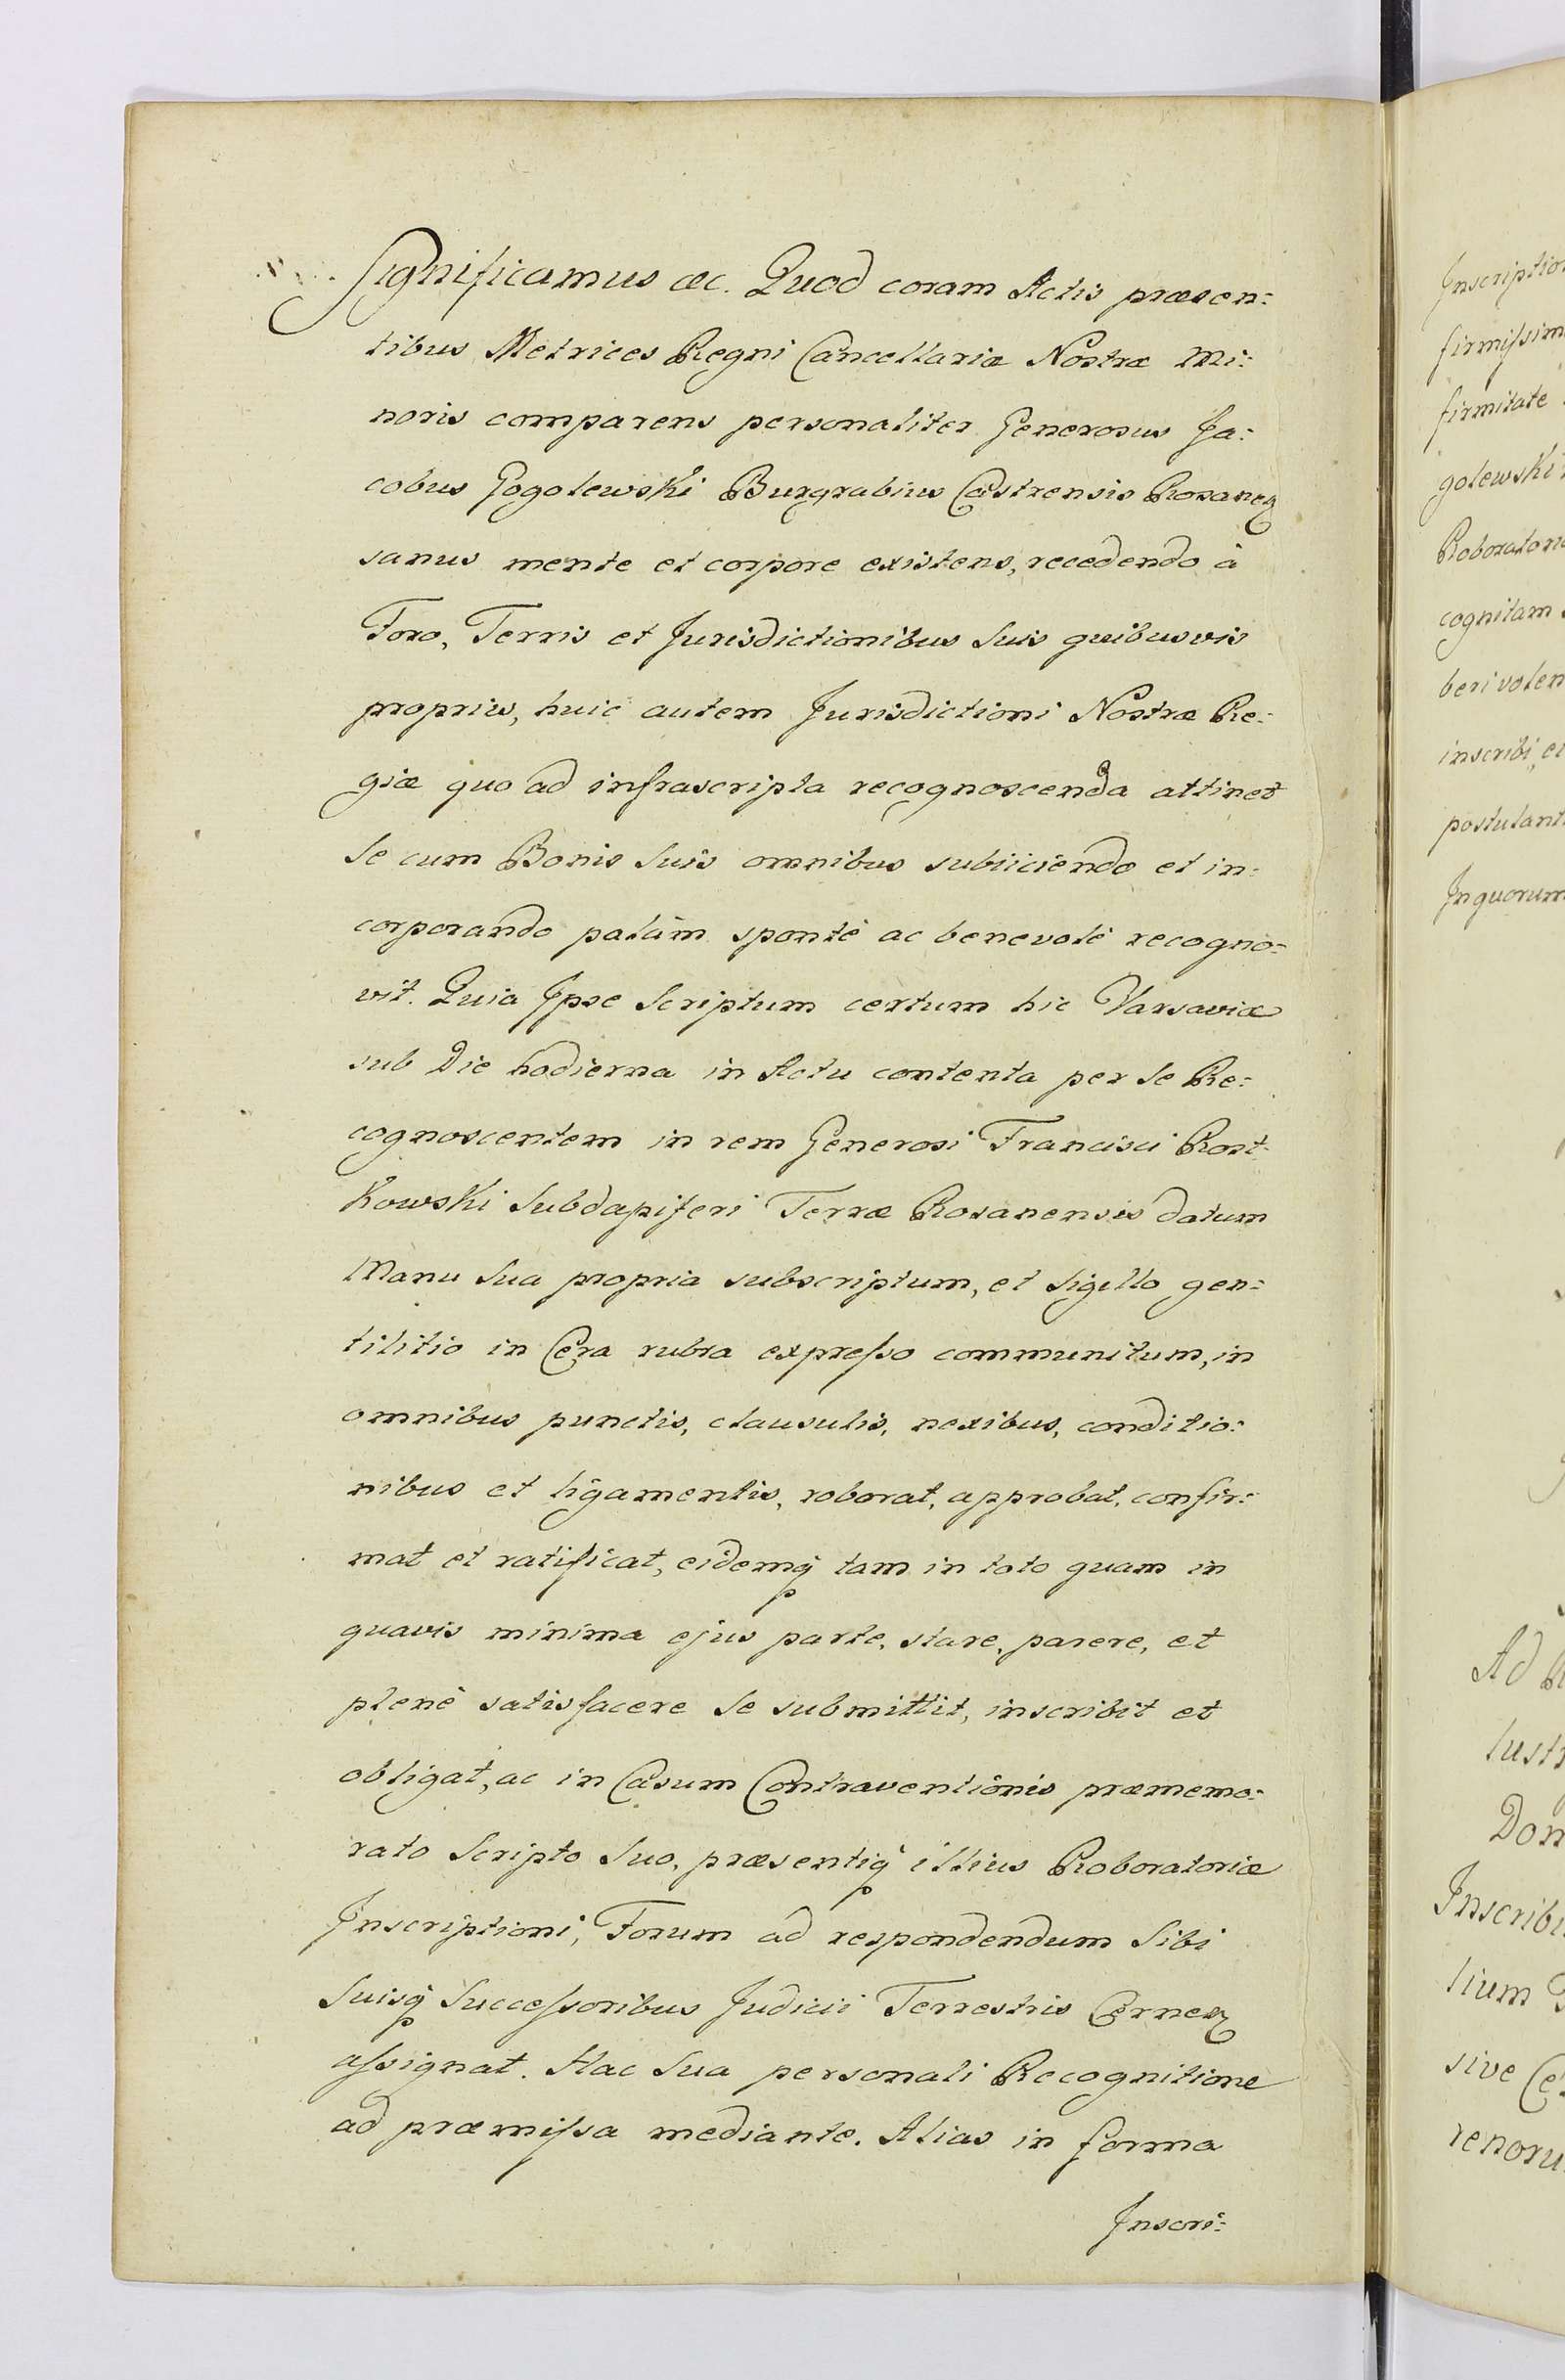 Significamus &c. Quod coram Actis præsen:
tibus Metrices Regni Cancellariæ Nostræ Mi:
noris comparens personaliter Generosus Ja:
cobus Gogolewski Burgrabius Castrensis Rosanen
sanus mente et corpore existens, recedendo à
Foro, Terris et Jurisdictionibus Suis quibusvis
propriis, huic autem Jurisdictioni Nostræ Re:
giæ quo ad infrascripta recognoscenda attinet
Se cum Bonis Suis omnibus subiiciendo et in:
corporando palàm spontè ac benevolè recogno:
vit. Quia Ipse Scriptum certum hic Varsaviæ
sub Die hodierna in Actu contenta per Se Re:
cognoscentem in rem Generosi Francisci Rost:
kowski Subdapiferi Terræ Rosanensis datum
Manu Sua propria subscriptum, et Sigillo gen:
tilitio in Cera rubra expresso communitum, in
omnibus punctis, clausulis, nexibus, conditio:
nibus et ligamentis, roborat, approbat, confir:
mat et ratificat, eidemq tam in toto quam in
quavis minima ejus parte, stare, parere, et
plenè satisfacere Se submittit, inscribit et
obligat, ac in Casum Contraventionis præmemo:
rato Scripto Suo, præsentiq illius Roboratoriæ
Inscriptioni, Forum ad respondendum Sibi
Suisq Successoribus Judicii Terrestris Cernen
assignat. Hac Sua personali Recognitione
ad præmissa mediante. Alias in forma
Inscri:
Inscriptio
firmissim
firmitate
golewski
Roborator
cognitam
beri volen
inscribi, et
postulant
In quorum
Ad
lust
Don
Inscrib
lium
sive Ce
renoru